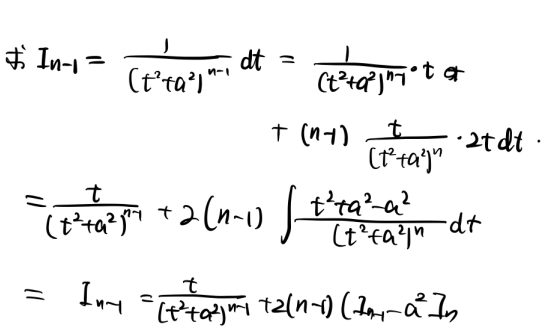 求 I_{n-1} = \frac{1}{(t^2+a^2)^{n-1}} dt = \frac{1}{(t^2+a^2)^{n-1}} \cdot t
+ (n-1) \frac{t}{(t^2+a^2)^n} \cdot 2t dt.
= \frac{t}{(t^2+a^2)^{n-1}} + 2(n-1) \int \frac{t^2+a^2-a^2}{(t^2+a^2)^n} dt
= I_{n-1} = \frac{t}{(t^2+a^2)^{n-1}} + 2(n-1) (I_{n-1} - a^2 I_n